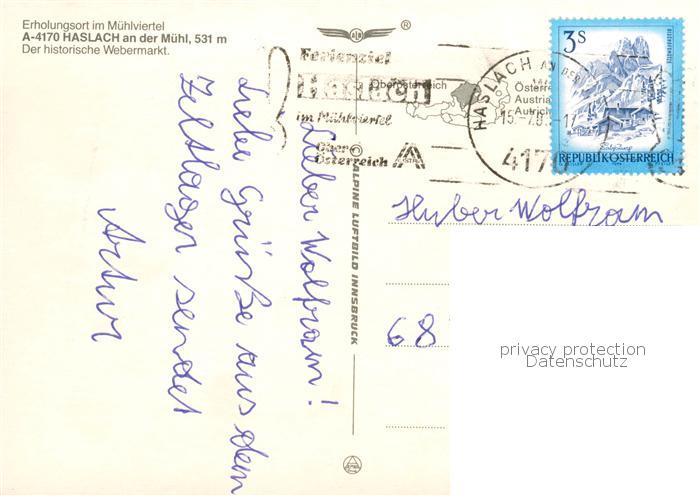 Erholungsort im Mühlviertel
A-4170 HASLACH an der Mühl, 531 m
Der historische Webermarkt.
ALPINE LUFTBILD
®
Ferienziel
Haslach
im Mühlviertel
Ober
Österreich
AUSTRIA
Oberösterreich
Österreich
Austria
Autriche
HASLACH AN DER
4170
3S
REPUBLIK ÖSTERREICH
ALPINE LUFTBILD INNSBRUCK
Lieber Wolfram!
Liebe Grüße aus dem
Zeltlager sendet
Artur
Huber Wolfram
68
privacy protection
Datenschutz